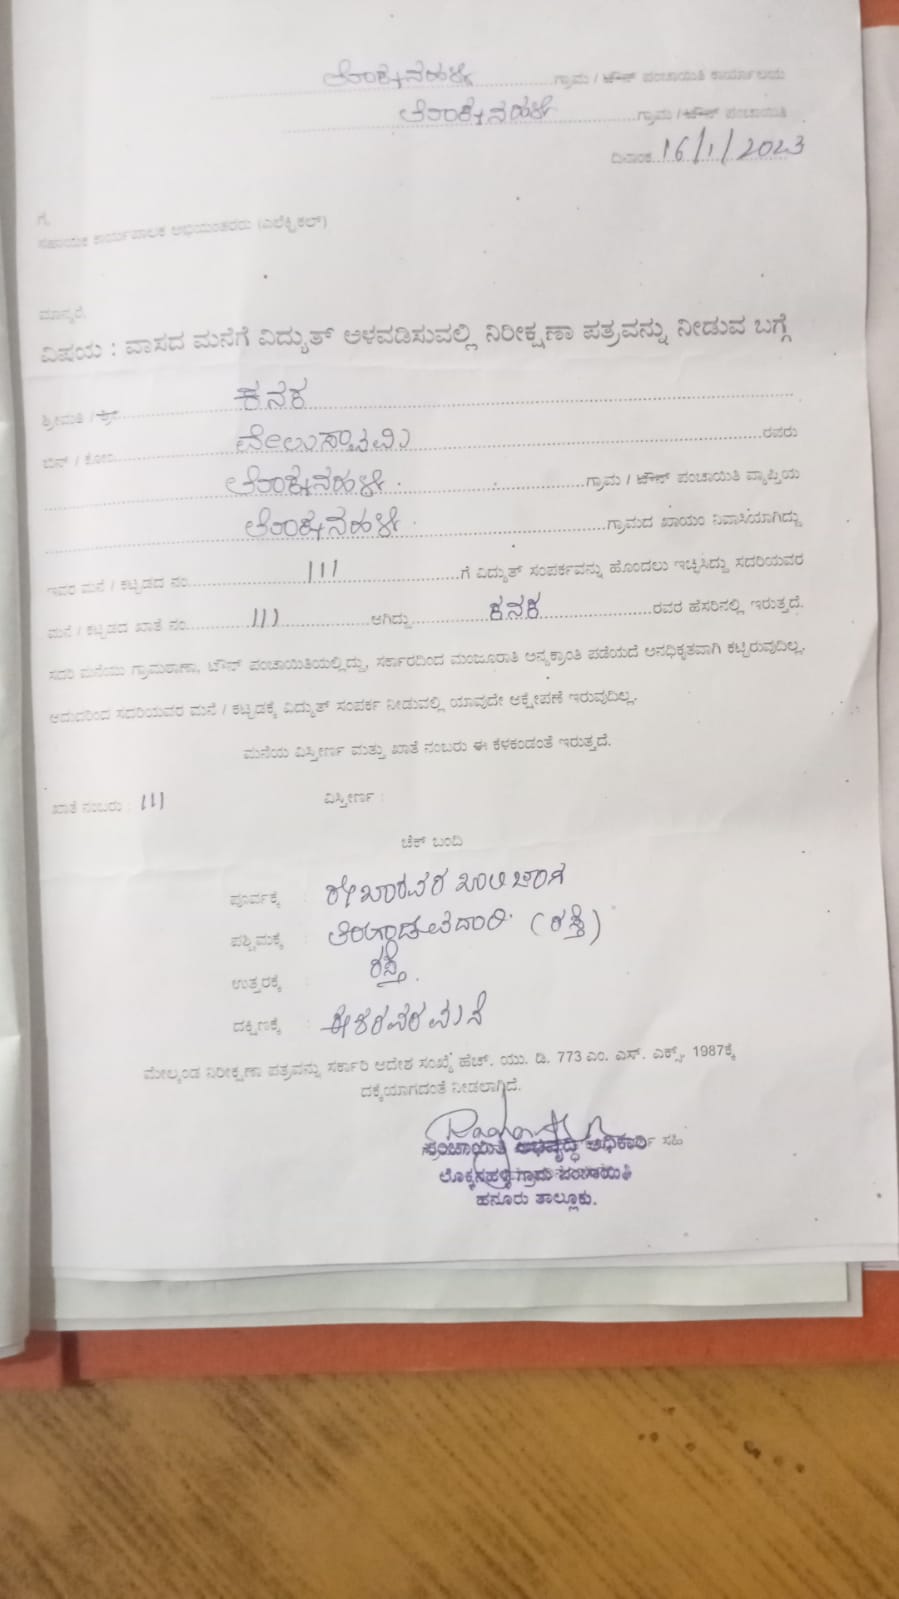 ಲೊಕ್ಕನಹಳ್ಳಿ ಗ್ರಾಮ / ಟೌನ್ ಪಂಚಾಯಿತಿ ಕಾರ್ಯಾಲಯ
ಲೊಕ್ಕನಹಳ್ಳಿ ಗ್ರಾಮ / ಟೌನ್ ಪಂಚಾಯಿತಿ
ದಿನಾಂಕ 16/1/2023
ಗೆ,
ಸಹಾಯಕ ಕಾರ್ಯಪಾಲಕ ಅಭಿಯಂತರರು (ಎಲೆಕ್ಟ್ರಿಕಲ್)
ಮಾನ್ಯರೆ,
ವಿಷಯ : ವಾಸದ ಮನೆಗೆ ವಿದ್ಯುತ್ ಅಳವಡಿಸುವಲ್ಲಿ ನಿರೀಕ್ಷಣಾ ಪತ್ರವನ್ನು ನೀಡುವ ಬಗ್ಗೆ
ಶ್ರೀಮತಿ / ಶ್ರೀ ಕನಕ
ಬಿನ್ / ಕೋಂ ವೇಲುಸ್ವಾಮಿ ರವರು
ಲೊಕ್ಕನಹಳ್ಳಿ ಗ್ರಾಮ / ಟೌನ್ ಪಂಚಾಯಿತಿ ವ್ಯಾಪ್ತಿಯ
ಲೊಕ್ಕನಹಳ್ಳಿ ಗ್ರಾಮದ ಖಾಯಂ ನಿವಾಸಿಯಾಗಿದ್ದು
ಇವರ ಮನೆ / ಕಟ್ಟಡದ ನಂ. 111 ಗೆ ವಿದ್ಯುತ್ ಸಂಪರ್ಕವನ್ನು ಹೊಂದಲು ಇಚ್ಛಿಸಿದ್ದು ಸದರಿಯವರ
ಮನೆ / ಕಟ್ಟಡದ ಖಾತೆ ನಂ. 111 ಆಗಿದ್ದು ಕನಕ ರವರ ಹೆಸರಿನಲ್ಲಿ ಇರುತ್ತದೆ.
ಸದರಿ ಮನೆಯು ಗ್ರಾಮಠಾಣಾ, ಟೌನ್ ಪಂಚಾಯಿತಿಯಲ್ಲಿದ್ದು, ಸರ್ಕಾರದಿಂದ ಮಂಜೂರಾತಿ ಅನ್ಯಕ್ರಾಂತಿ ಪಡೆಯದೆ ಅನಧಿಕೃತವಾಗಿ ಕಟ್ಟಿರುವುದಿಲ್ಲ.
ಆದುದರಿಂದ ಸದರಿಯವರ ಮನೆ / ಕಟ್ಟಡಕ್ಕೆ ವಿದ್ಯುತ್ ಸಂಪರ್ಕ ನೀಡುವಲ್ಲಿ ಯಾವುದೇ ಆಕ್ಷೇಪಣೆ ಇರುವುದಿಲ್ಲ.
ಮನೆಯ ವಿಸ್ತೀರ್ಣ ಮತ್ತು ಖಾತೆ ನಂಬರು ಈ ಕೆಳಕಂಡಂತೆ ಇರುತ್ತದೆ.
ಖಾತೆ ನಂಬರು : 111 ವಿಸ್ತೀರ್ಣ :
ಚೆಕ್ ಬಂದಿ
ಪೂರ್ವಕ್ಕೆ : ರೇಖಾರವರ ಖಾಲಿ ಜಾಗ
ಪಶ್ಚಿಮಕ್ಕೆ : (ರಸ್ತೆ)
ಉತ್ತರಕ್ಕೆ : ರಸ್ತೆ.
ದಕ್ಷಿಣಕ್ಕೆ : ಮನೆ
ಮೇಲ್ಕಂಡ ನಿರೀಕ್ಷಣಾ ಪತ್ರವನ್ನು ಸರ್ಕಾರಿ ಆದೇಶ ಸಂಖ್ಯೆ ಹೆಚ್. ಯು. ಡಿ. 773 ಎಂ. ಎಸ್. ಎಕ್ಸ್. 1987ಕ್ಕೆ
ದಕ್ಕೆಯಾಗದಂತೆ ನೀಡಲಾಗಿದೆ.
ಪಂಚಾಯಿತಿ ಅಭಿವೃದ್ಧಿ ಅಧಿಕಾರಿ ಸಹಿ
ಲೊಕ್ಕನಹಳ್ಳಿ ಗ್ರಾಮ ಪಂಚಾಯಿತಿ
ಹನೂರು ತಾಲ್ಲೂಕು.